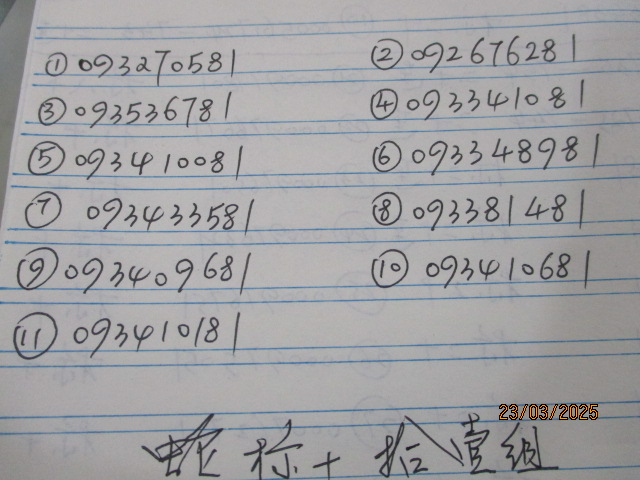 ① 093270581 ② 092676281
③ 093536781 ④ 093341081
⑤ 093410081 ⑥ 093348981
⑦ 093433581 ⑧ 093381481
⑨ 093409681 ⑩ 093410681
⑪ 093410181
23/03/2025
蛇标+拾壹组